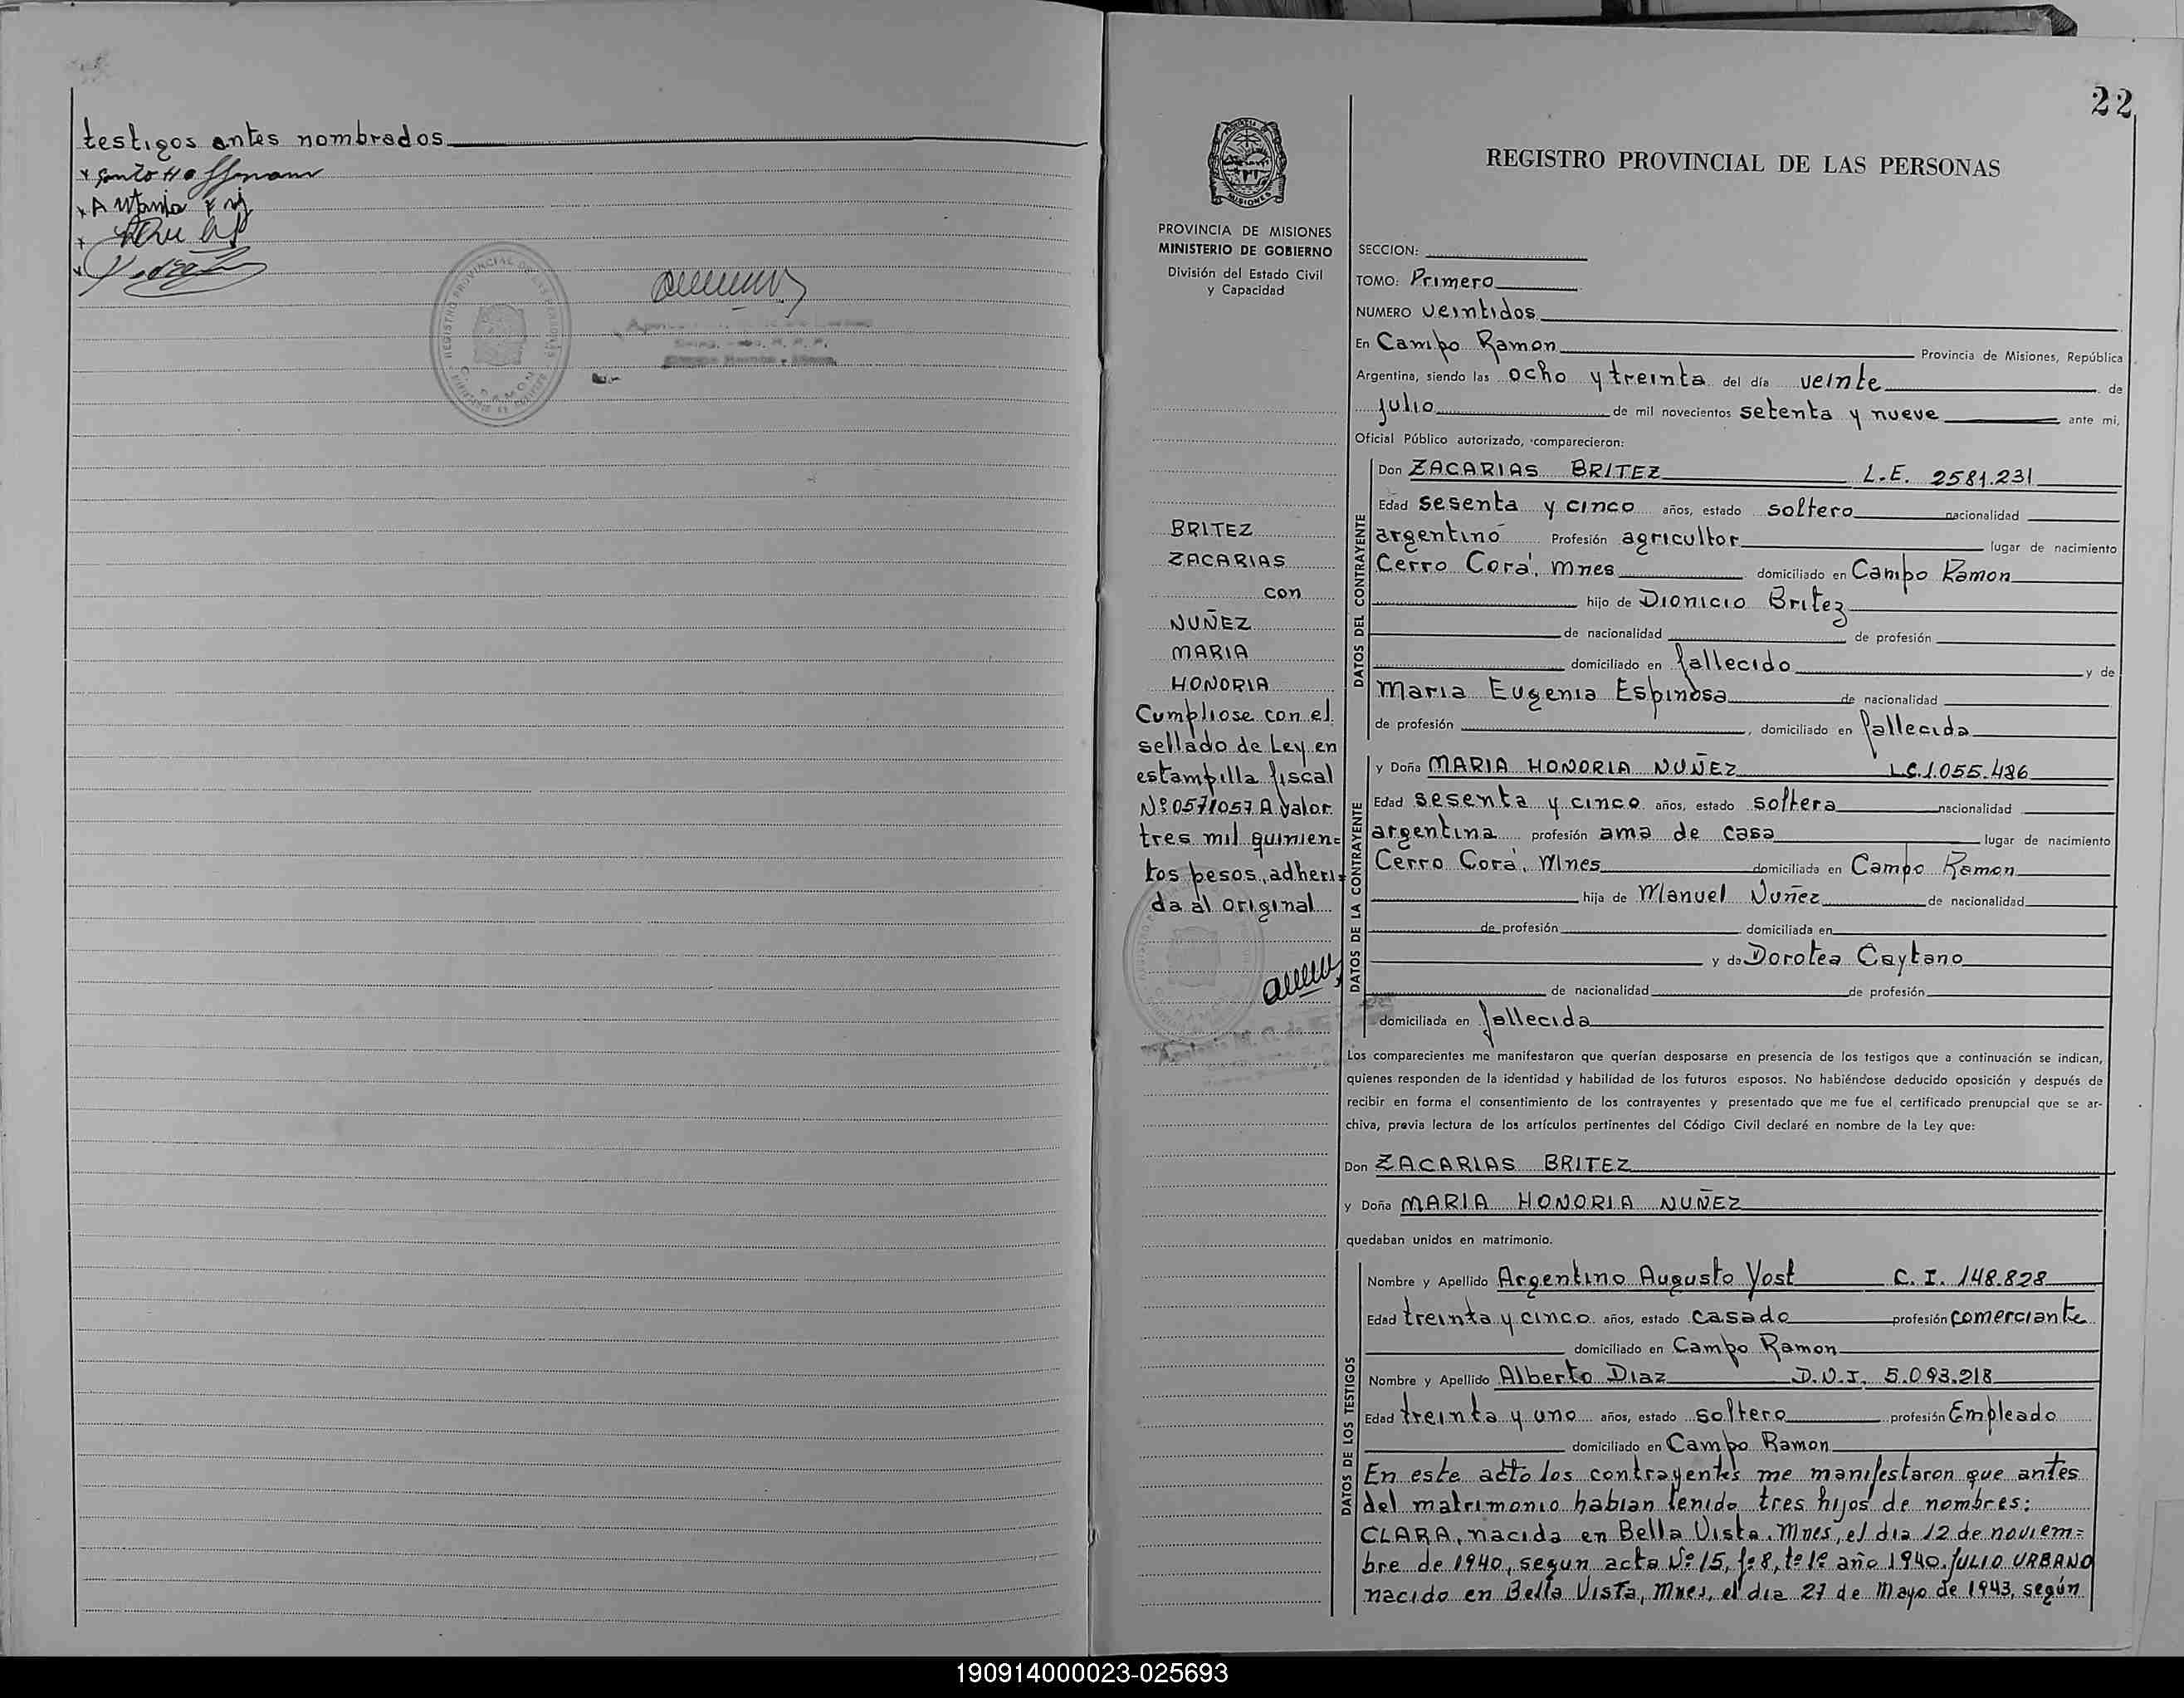 testigos antes nombrados
REGISTRO PROVINCIAL DE LAS PERSONAS
22
PROVINCIA DE MISIONES
MINISTERIO DE GOBIERNO
División del Estado Civil
y Capacidad
BRITEZ
ZACARIAS
con
NUÑEZ
MARIA
HONORIA
Cumpliose con el
sellado de Ley en
estampilla fiscal
Nº 0571057 A valor
tres mil quinien=
tos pesos, adheri=
da al original
REGISTRO PROVINCIAL DE LAS PERSONAS
SECCION:
TOMO: Primero
NUMERO veintidos
En Campo Ramon Provincia de Misiones, República
Argentina, siendo las ocho y treinta del día veinte de
julio de mil novecientos setenta y nueve ante mi,
Oficial Público autorizado, comparecieron:
DATOS DEL CONTRAYENTE
Don ZACARIAS BRITEZ L.E. 2581.231
Edad sesenta y cinco años, estado soltero nacionalidad
argentino Profesión agricultor lugar de nacimiento
Cerro Corá, Mnes domiciliado en Campo Ramon
hijo de Dionicio Britez
de nacionalidad de profesión
domiciliado en fallecido y de
Maria Eugenia Espinosa de nacionalidad
de profesión , domiciliado en fallecida
DATOS DE LA CONTRAYENTE
y Doña MARIA HONORIA NUÑEZ L.C. 1.055.486
Edad sesenta y cinco años, estado soltera nacionalidad
argentina profesión ama de casa lugar de nacimiento
Cerro Corá, Mnes domiciliada en Campo Ramon
hija de Manuel Nuñez de nacionalidad
de profesión domiciliada en
y de Dorotea Caytano
de nacionalidad de profesión
domiciliada en fallecida
Los comparecientes me manifestaron que querían desposarse en presencia de los testigos que a continuación se indican,
quienes responden de la identidad y habilidad de los futuros esposos. No habiéndose deducido oposición y después de
recibir en forma el consentimiento de los contrayentes y presentado que me fue el certificado prenupcial que se ar-
chiva, previa lectura de los artículos pertinentes del Código Civil declaré en nombre de la Ley que:
Don ZACARIAS BRITEZ
y Doña MARIA HONORIA NUÑEZ
quedaban unidos en matrimonio.
DATOS DE LOS TESTIGOS
Nombre y Apellido Argentino Augusto Yost C.I. 148.828
Edad treinta y cinco años, estado casado profesión comerciante
domiciliado en Campo Ramon
Nombre y Apellido Alberto Diaz D.N.I. 5.093.218
Edad treinta y uno años, estado soltero profesión Empleado
domiciliado en Campo Ramon
En este acto los contrayentes me manifestaron que antes
del matrimonio habian tenido tres hijos de nombres:
CLARA, nacida en Bella Vista, Mnes, el dia 12 de noviem=
bre de 1940, segun acta Nº 15, fº 8, tº 1º año 1940. JULIO URBANO
nacido en Bella Vista, Mnes, el dia 27 de Mayo de 1943, según
190914000023-025693